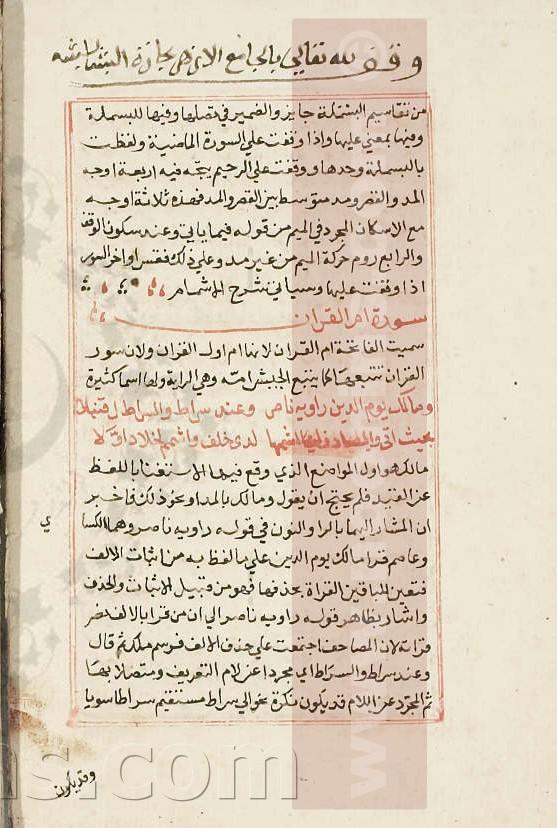 وقف لله تعالى بالجامع الازهر بحارة البشابشه
من تقاسيم البسملة جايز والضمير في تصلها وفيها للبسملة
وفيها بمعني عليها واذا وقفت علي السورة الماضية ولفظت
بالبسملة وحدها ووقفت علي الرحيم يتجه فيه اربعة اوجه
المد والقصر ومد متوسط بين القصر والمد فهذه ثلاثة اوجه
مع الاسكان المجرد في الميم من قوله فيما ياتي وعند سكون الوقف
والرابع روم حركة الميم من غير مد وعلي ذلك فقس اواخر السور
اذا وقفت عليها وسياتي شرح الاشمام
سورة ام القران
سميت الفاتحة ام القران لانها ام اول القران ولان سور
القران تتبعها كما يتبع الجيش امه وهي الراية ولها اسما كثيرة
ومالك يوم الدين راويه ناصر وعند سراط والسراط ل قنبلا
بحيث اتي والصاد زايا اشمها لدي خلف واشمم لخلاد اوّلا
مالك هو اول المواضع الذي وقع فيها الاستغنا باللفظ
عن القيد فلم يحتج ان يقول ومالك بالمد او نحو ذلك فاخبر
ان المشار اليهما بالرا والنون في قوله راويه ناصر وهما الكسا
ي
وعاصم قرا مالك يوم الدين علي ما لفظ به من اثبات الالف
فتعين للباقين القراة بحذفها فهو من قبيل الاثبات والحذف
واشار بظاهر قوله راويه ناصر الي ان من قرا بالالف نصر
قراته لان المصاحف اجتمعت علي حذف الالف فرسم ملك ثم قال
وعند سراط والسراط اي مجردا عن لام التعريف ومتصلا بها
ثم المجرد عن اللام قد يكون نكرة نحو الي سراط مستقيم سراطا سويا
وقد يكون
ns.com